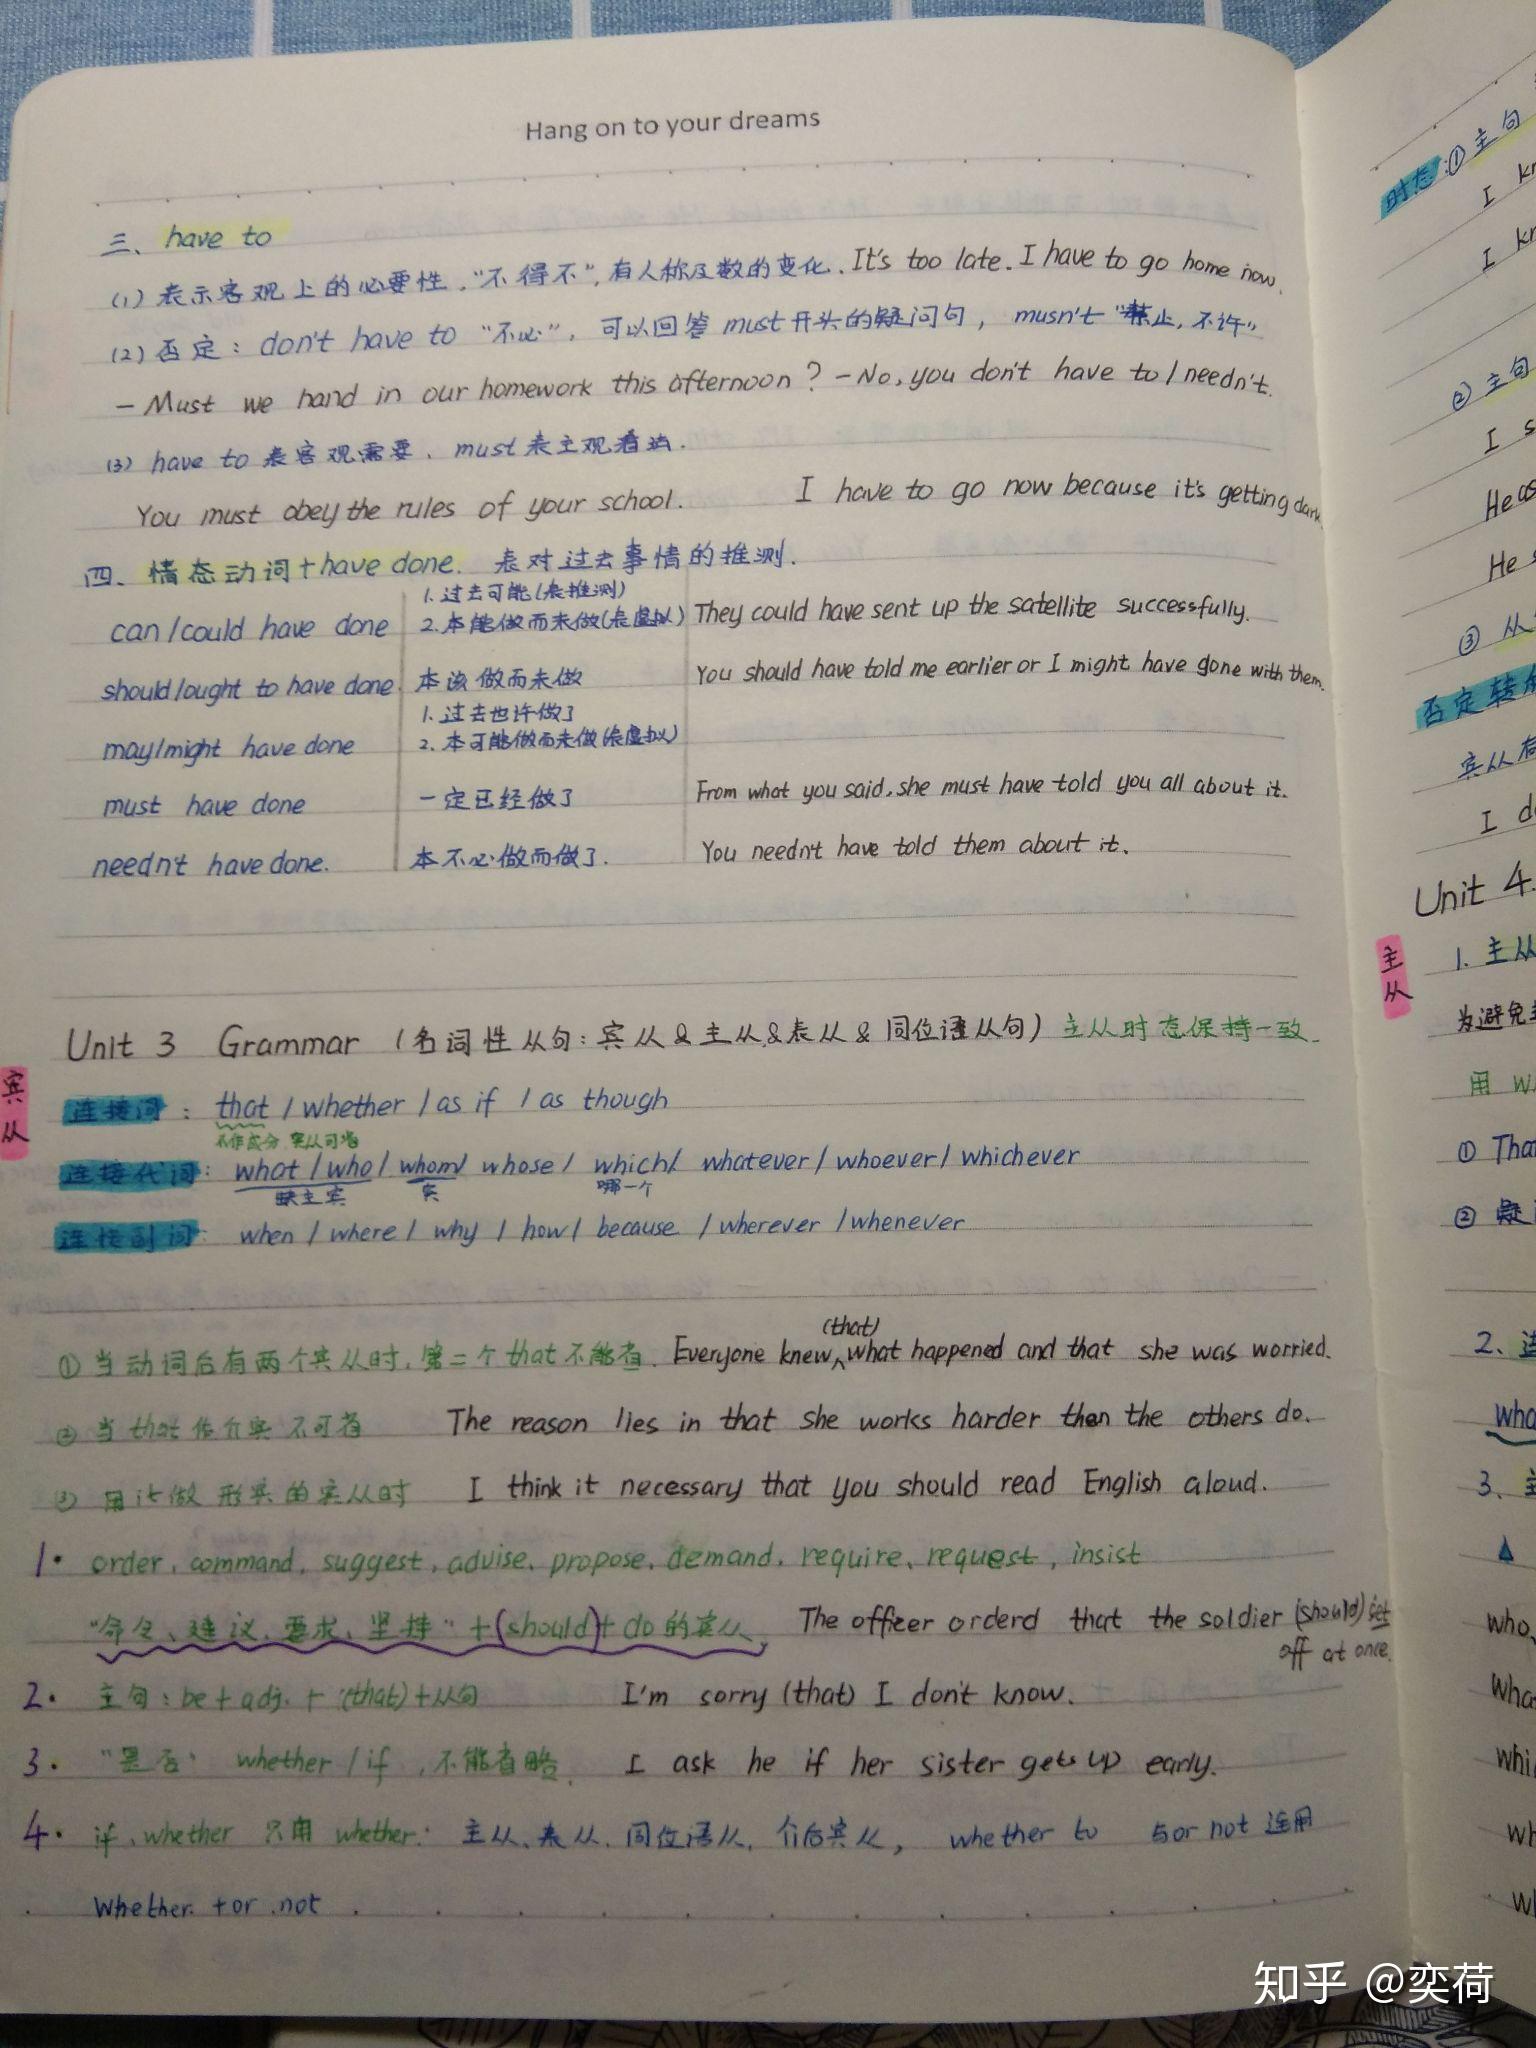 Hang on to your dreams
三、have to
(1) 表示客观上的必要性，"不得不"，有人称及数的变化. It's too late. I have to go home now.
(2) 否定：don't have to "不必"，可以回答must开头的疑问句， musn't "禁止，不许"
— Must we hand in our homework this afternoon? — No, you don't have to / needn't.
(3) have to 表客观需要、must 表主观看法.
You must obey the rules of your school. I have to go now because it's getting dark.
四、情态动词+have done. 表对过去事情的推测.
can/could have done 1. 过去可能(表推测)
2. 本能做而未做(表虚拟) They could have sent up the satellite successfully.
should/ought to have done. 本该做而未做 You should have told me earlier or I might have gone with them.
may/might have done 1. 过去也许做了
2. 本可能做而未做(表虚拟)
must have done 一定已经做了 From what you said, she must have told you all about it.
needn't have done. 本不必做而做了. You needn't have told them about it.
Unit 3 Grammar (名词性从句：宾从&主从&表从&同位语从句) 主从时态保持一致.
宾从
连接词：that / whether / as if / as though
不作成分 宾从可省
连接代词：what / who / whom / whose / which / whatever / whoever / whichever
缺主宾 宾 哪一个
连接副词：when / where / why / how / because / wherever / whenever
(that)
① 当动词后有两个宾从时，第二个that不能省. Everyone knew what happened and that she was worried.
② 当that作介宾不可省 The reason lies in that she works harder then the others do.
③ 用it做形宾的宾从时 I think it necessary that you should read English aloud.
1. order, command, suggest, advise, propose, demand, require, request, insist
"命令、建议、要求、坚持"+(should)+do的宾从， The officer orderd that the soldier (should) set
off at once.
2. 主句：be + adj. + (that)+从句 I'm sorry (that) I don't know.
3. "是否" whether / if，不能省略. I ask he if her sister gets up early.
4. if、whether 只用 whether: 主从、表从、同位语从、介后宾从， whether to 与or not 连用
Whether + or not
时态：① 主句
I
I
② 主句
I
He
He s
③ 从
否定转
宾从
I d
Unit 4.
主从
1. 主从
为避免
用
① Tha
② 疑
2、连
who
3、主
who,
wha
whi
wh
wh
知乎 @奕荷